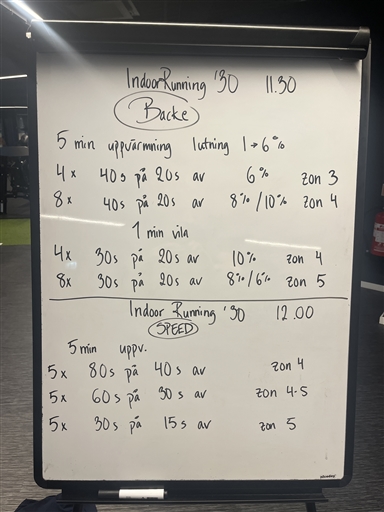 Indoor Running '30 11.30
Backe
5 min uppvärmning lutning 1→6%
4x 40s på 20s av 6% zon 3
8x 40s på 20s av 8%/10% zon 4
1 min vila
4x 30s på 20s av 10% zon 4
8x 30s på 20s av 8%/6% zon 5
Indoor Running '30 12.00
SPEED
5 min uppv.
5x 80s på 40s av zon 4
5x 60s på 30s av zon 4-5
5x 30s på 15s av zon 5